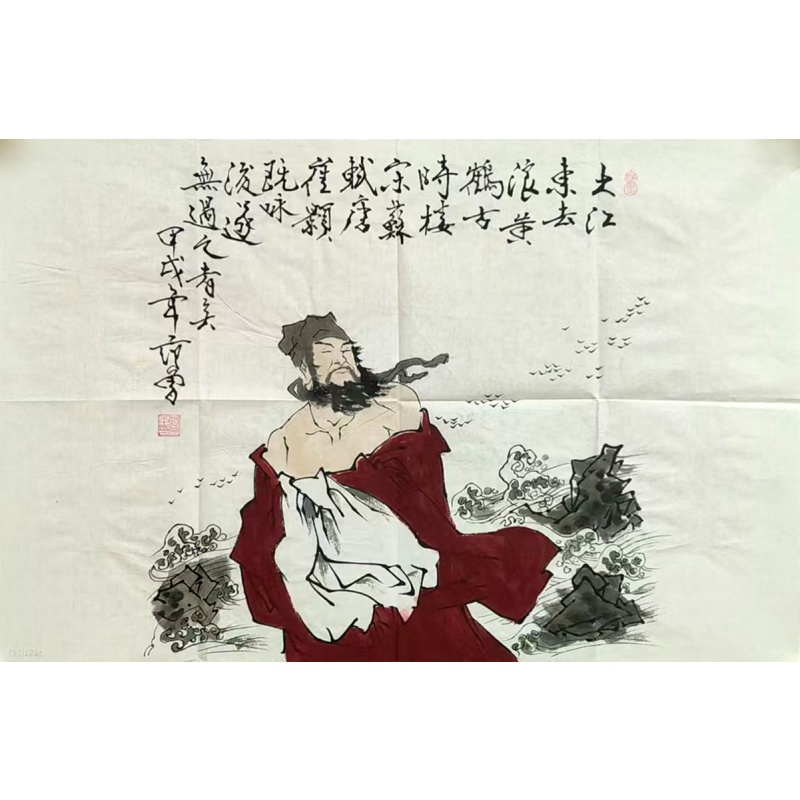 大江
東去
浪黃
鶴古
時樓
宋蘇
軾唐
崔顥
既味
後遂
無過之者矣
甲戌年范曾